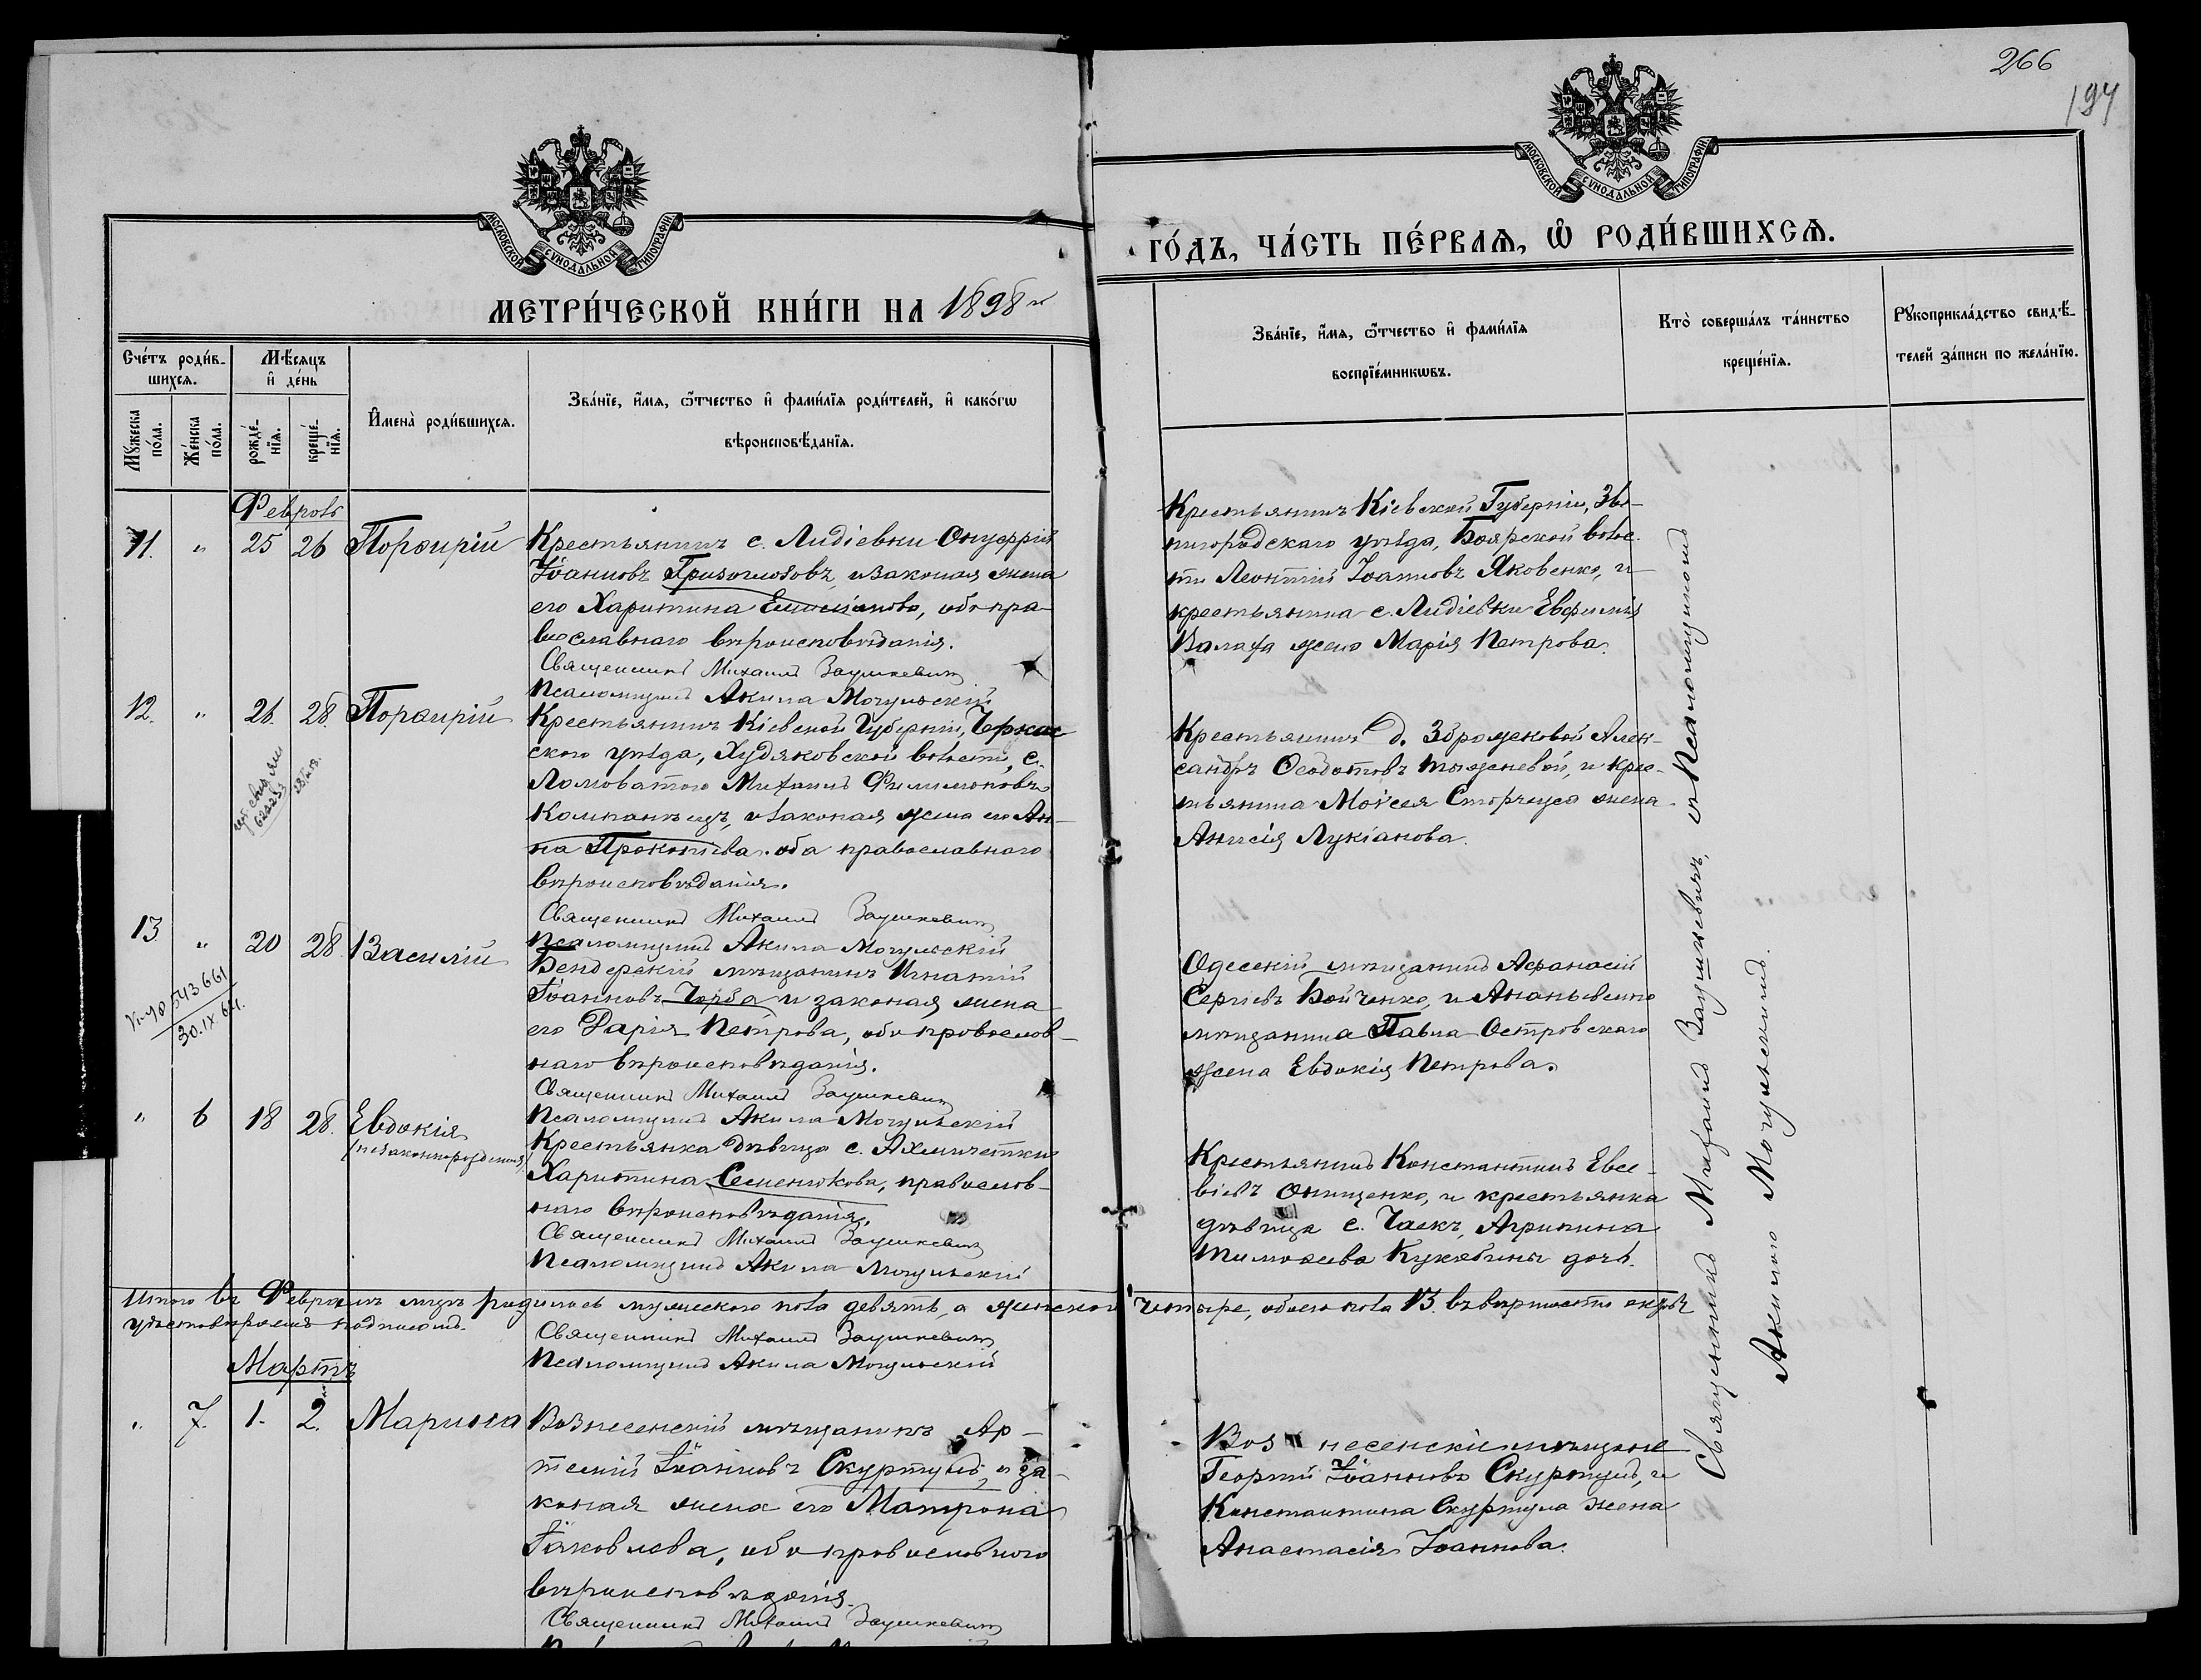 266
194
МОСКОВСКОЙ СѴНОДАЛЬНОЙ ТИПОГРАФІИ
МОСКОВСКОЙ СѴНОДАЛЬНОЙ ТИПОГРАФІИ
МЕТРИ́ЧЕСКОЙ КНИ́ГИ НА 1898й
ГО́ДЪ, ЧА́СТЬ ПЕ́РВАѦ, Ѡ РОДИ́ВШИХСѦ.
Сче́тъ роди́в-
шихсѧ.
Мѹ́жеска
по́ла.
Же́нска
по́ла.
Мѣ́сѧцъ
и҆ де́нь
рожде́-
нїѧ.
креще́-
нїѧ.
И҆мена̀ роди́вшихсѧ.
Зва́нїе, и҆́мѧ, ѻ҆́тчество и҆ фами́лїѧ роди́телей, и҆ како́гѡ
вѣроисповѣ́данїѧ.
Зва́нїе, и҆́мѧ, ѻ҆́тчество и҆ фами́лїѧ
воспрїе́мникѡвъ.
Кто̀ соверша́лъ та́инство
креще́нїѧ.
Рѹкоприкла́дство свидѣ́-
телей за́писи по жела́нїю.
Февраль
11. " 25 26 Порфирій
Крестьянинъ с. Лидіевки Онуфрій
Іоанновъ Кривошовъ, и законая жена
его Харитина Емиліанова, оба пра-
вославнаго вѣроисповѣданія.
Священникъ Михаилъ Заушкевич
Псаломщикъ Акила Могульскій
Крестьянинъ Кіевской Губерніи, Зве-
нигородскаго уѣзда, Боярской волос-
ти Леонтій Іоанновъ Яковенко, и
крестьянина с. Лидіевки Евфимія
Валаха жена Марія Петрова.
12. " 26. 28. Порфирій
Крестьянинъ Кіевской Губерніи, Черкас
скаго уѣзда, Худяковской волости, с.
Ломоватого Михаилъ Филимоновъ
Компанѣецъ, и законая жена его Ан-
на Прокопіева. оба православнаго
вѣроисповѣданія.
Священникъ Михаилъ Заушкевич
Псаломщикъ Акила Могульскій
Крестьянинъ д. Зброжековой Алек-
сандръ Ѳеодотовъ Тыжневой, и крес-
тьянина Моисея Сторчуса жена
Анисія Лукіанова.
13 " 20 28 Василій
VI-ЧО 543661
30.IX 64г.
Бендерскій мѣщанинъ Игнатій
Іоанновъ Чорба и законая жена
его Дарія Петрова, оба православ-
наго вѣроисповѣданія.
Священникъ Михаилъ Заушкевич
Псаломщикъ Акила Могульскій
Одесскій мѣщанинъ Афанасій
Сергіевъ Бойченко, и Ананьевскаго
мѣщанина Павла Островскаго
жена Евдокія Петрова.
" 6 18 28. Евдокія
(незаконнорожденная)
Крестьянка дѣвица с. Ахмечетки
Харитина Семенюкова, православ-
наго вѣроисповѣданія.
Священникъ Михаилъ Заушкевич
Псаломщикъ Акила Могульскій
Крестьянинъ Константинъ Евсе-
віевъ Онищенко, и крестьянка
дѣвица с. Чаекъ, Агрипина
Тимоѳеева Кукобины дочь.
Итого въ Февралѣ мцѣ родилось мужескаго пола девять, а женскаго четыре, обоего пола 13. въ вѣрности актовъ
удостовѣряемъ подписомъ.
Священникъ Михаилъ Заушкевич
Псаломщикъ Акила Могульскій
Мартъ
" 7. 1. 2. Марина
Вознесенскій мѣщанинъ Ар-
темій Іоанновъ Скуртулъ, и за-
коная жена его Матрона
Іаковлева, оба православнаго
вѣроисповѣданія.
Священникъ Михаилъ Заушкевич
Вознесенскіе мѣщане
Георгій Іоанновъ Скуртулъ, и
Константина Скуртула жена
Анастасія Іоаннова.
Священникъ Михаилъ Заушкевичъ, съ Псаломщикомъ
Акилою Могульскимъ.